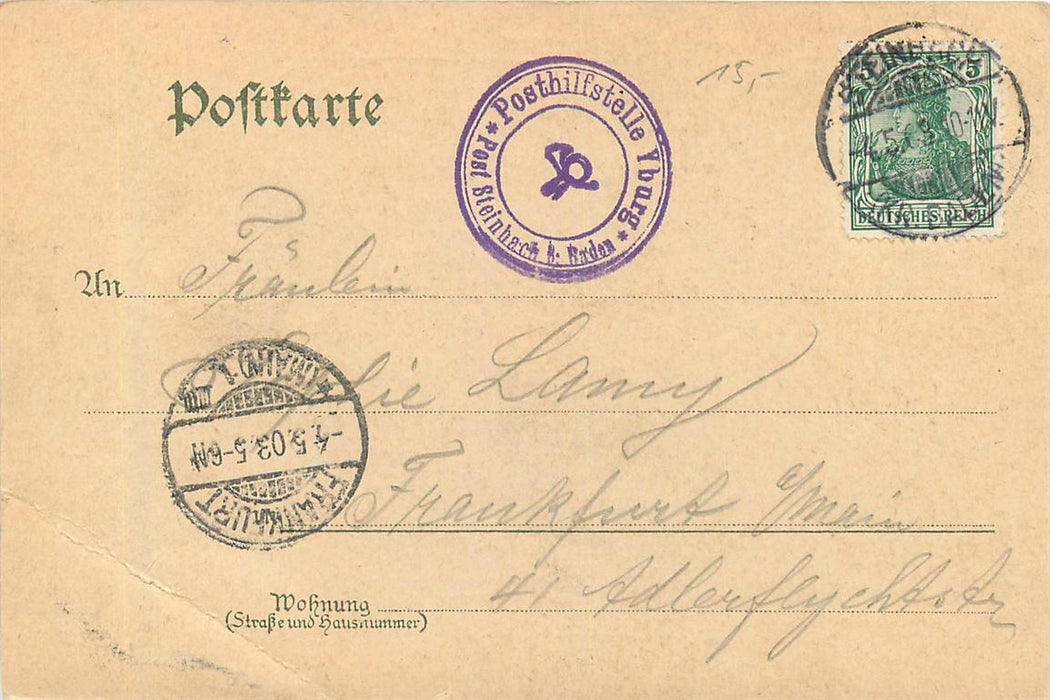 Postkarte
15,-
Posthilfstelle Yburg
* Post Steinbach b. Baden *
5 5
DEUTSCHES REICH
An Fräulein
Lamy
Frankfurt a/Main
FRANKFURT
(MAIN) 1.
4.5.03.5-6N
Wohnung 41 Adlerflychtstr
(Straße und Hausnummer)